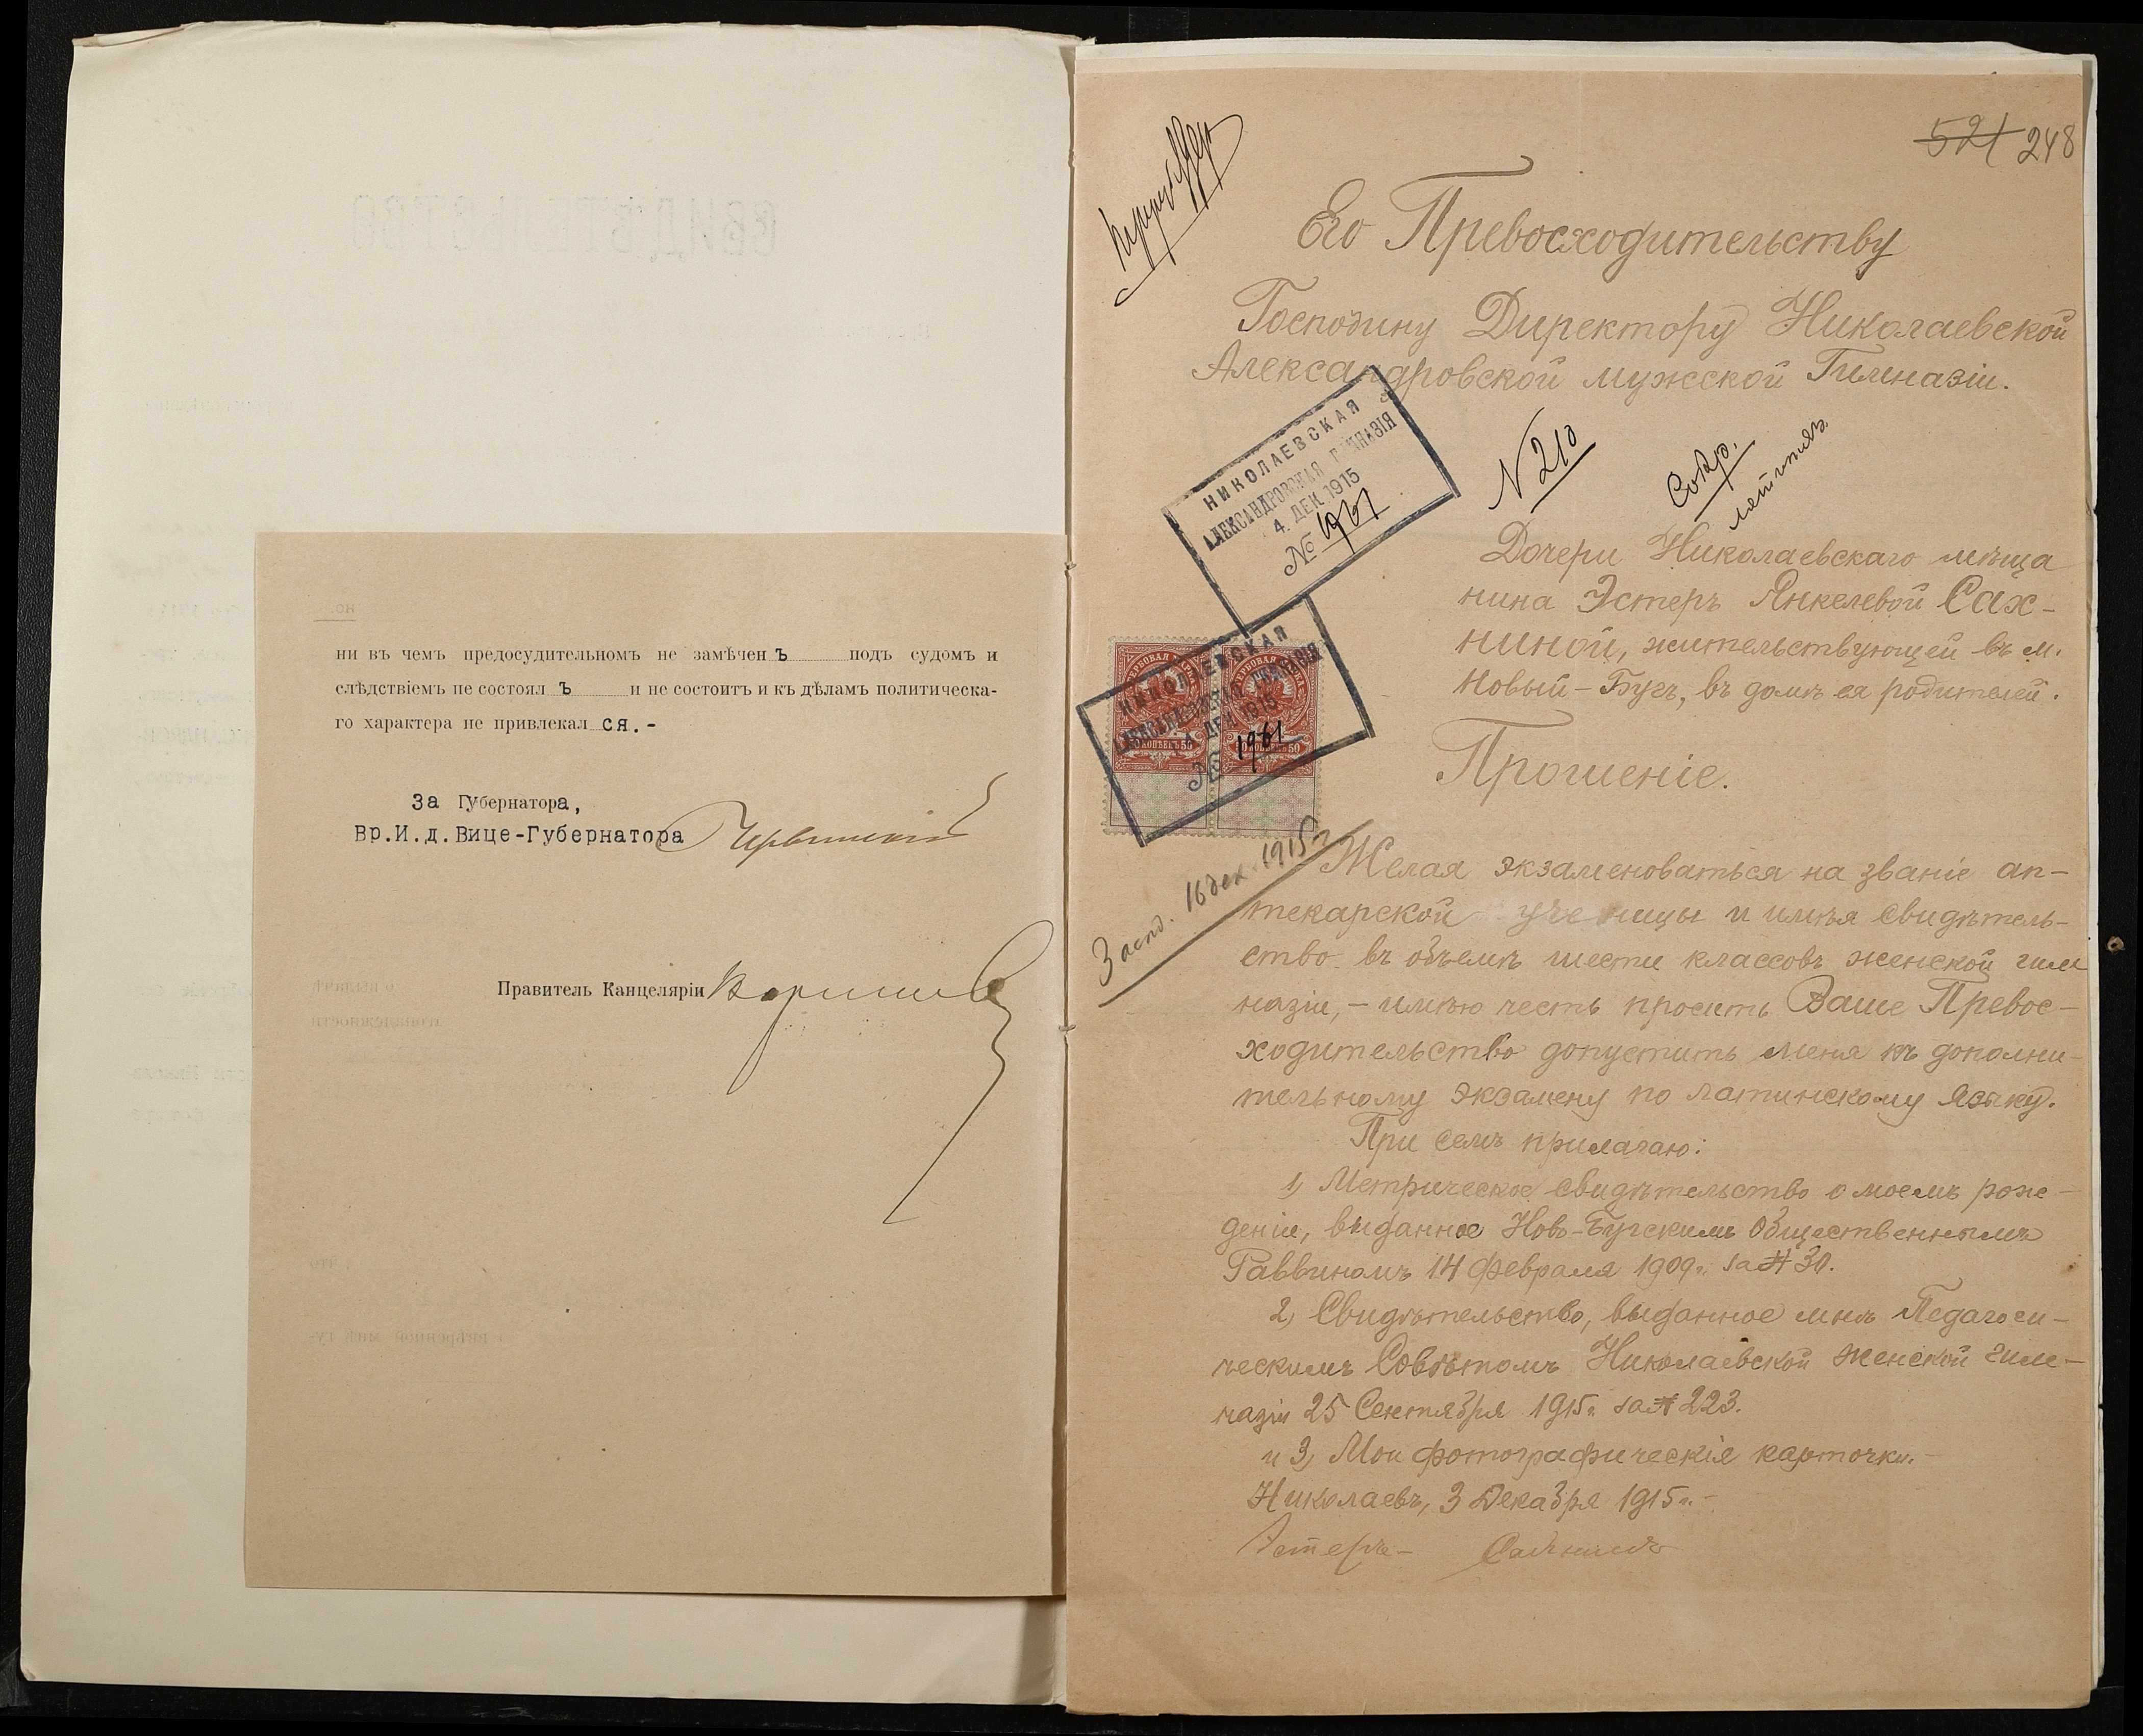 ни въ чемъ предосудительномъ не замѣчен ъ подъ судомъ и
слѣдствіемъ не состоял ъ и не состоитъ и къ дѣламъ политическа-
го характера не привлекал ся.-
За Губернатора,
Вр.И.д. Вице-Губернатора
Правитель Канцеляріи
521 248
Его Превосходительству
Господину Директору Николаевской
Александровской мужской Гимназіи.
НИКОЛАЕВСКАЯ
АЛЕКСАНДРОВСКАЯ ГИМНАЗІЯ
4. ДЕК. 1915
№ 1961
N 210
Дочери Николаевскаго мѣща
нина Эстеръ Янкелевой Сах-
ниной, жительствующей въ м.
Новый-Бугъ, въ домѣ ея родителей.
НИКОЛАЕВСКАЯ
АЛЕКСАНДРОВСКАЯ ГИМНАЗІЯ
4 ДЕК 1915
№ 1961
Прошеніе.
16 дек. 1915 г.
Желая экзаменоваться на званіе ап-
текарской ученицы и имѣя свидѣтель-
ство въ объемѣ шести классовъ женской гим
назіи, - имѣю честь просить Ваше Превос-
ходительство допустить меня къ дополни-
тельному экзамену по латинскому языку.
При семъ прилагаю:
1) Метрическое свидѣтельство о моемъ рож-
деніи, выданное Ново-Бугскимъ Общественнымъ
Раввиномъ 14 февраля 1909 г. за № 30.
2) Свидѣтельство, выданное мнѣ Педагоги-
ческимъ Совѣтомъ Николаевской женской гим-
назіи 25 Сентября 1915 г. за № 223.
и 3) Мои фотографическія карточки.-
Николаевъ, 3 Декабря 1915 г.-
Эстеръ- Сахнина